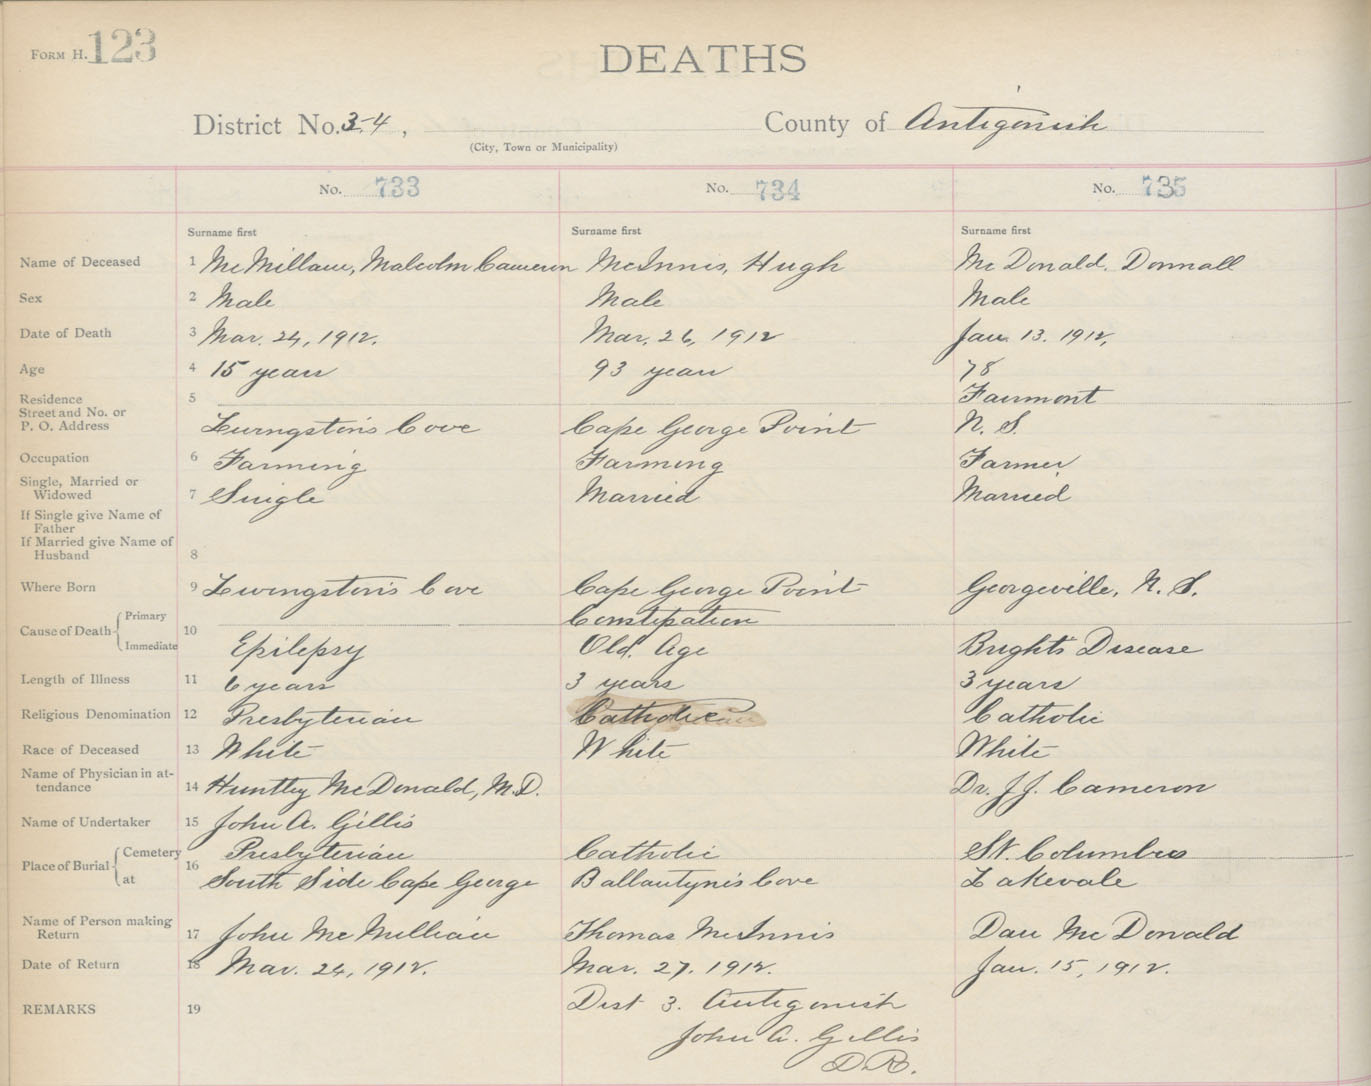 FORM H. 123
DEATHS
District No. 3-4, County of Antigonish
(City, Town or Municipality)
No. 733 No. 734 No. 735
Surname first Surname first Surname first
Name of Deceased 1 McMillan, Malcolm Cameron McInnis, Hugh McDonald, Donnall
Sex 2 Male Male Male
Date of Death 3 Mar. 24, 1912. Mar. 26, 1912 Jan. 13. 1912.
Age 4 15 years 93 years 78
Residence 5 Fairmont
Street and No. or
P. O. Address Livingston's Cove Cape George Point N. S.
Occupation 6 Farming Farming Farmer
Single, Married or
Widowed 7 Single Married Married
If Single give Name of
Father
If Married give Name of
Husband 8
Where Born 9 Livingston's Cove Cape George Point Georgeville, N. S.
Cause of Death Primary 10 Constipation
Immediate Epilepsy Old Age Brights Disease
Length of Illness 11 6 years 3 years 3 years
Religious Denomination 12 Presbyterian Catholic Catholic
Race of Deceased 13 White White White
Name of Physician in at-
tendance 14 Huntley McDonald, M.D. Dr. J.J. Cameron
Name of Undertaker 15 John A. Gillis
Place of Burial Cemetery 16 Presbyterian Catholic St. Columba
at South Side Cape George Ballantyne's Cove Lakevale
Name of Person making
Return 17 John McMillan Thomas McInnis Dan McDonald
Date of Return 18 Mar. 24, 1912. Mar. 27. 1912. Jan. 15, 1912.
REMARKS 19 Dist 3. Antigonish
John A. Gillis
D.R.